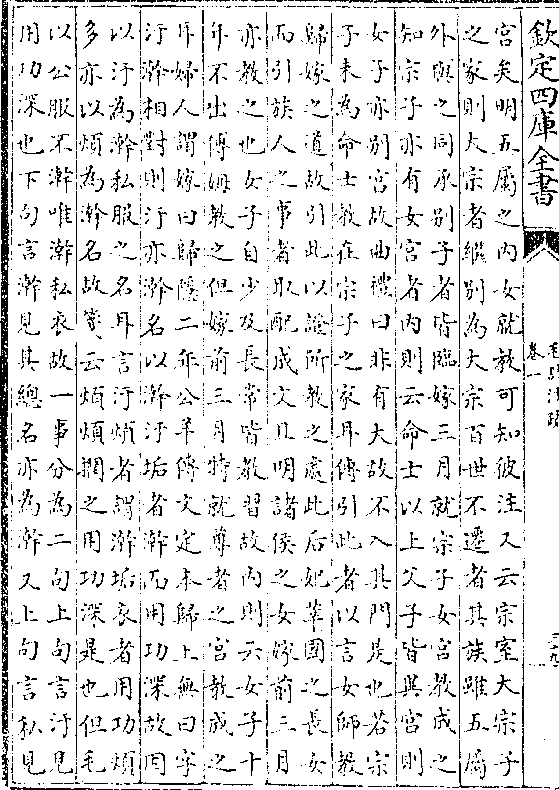 欽定四庫全書
毛詩注疏
卷一
宮矣明五屬之内女就教可知彼注又云宗室大宗子
之家則大宗者繼别為大宗百世不遷者其族雖五屬
外與之同承别子者皆臨嫁三月就宗子女宮教成之
知宗子亦有女宮者内則云命士以上父子皆異宮則
女子亦别宮故曲禮曰非有大故不入其門是也若宗
子未為命士教在宗子之家耳傳引此者以言女師教
歸嫁之道故引此以證所教之處此后妃莘國之長女
而引族人之事者取配成文且明諸侯之女嫁前三月
亦教之也女子自少及長常皆教習故内則云女子十
年不出傅姆教之但嫁前三月特就尊者之宮教成之
耳婦人謂嫁曰歸隱二年公羊傳文定本歸上無曰字
汙澣相對則汙亦澣名以澣汙垢者澣而用功深故因
以汙為澣私服之名耳言汙煩者謂澣垢衣者用功煩
多亦以煩為澣名故箋云煩煩撋之用功深是也但毛
以公服不澣唯澣私衣故一事分為二句上句言汙見
用功深也下句言澣見其總名亦為澣又上句言私見